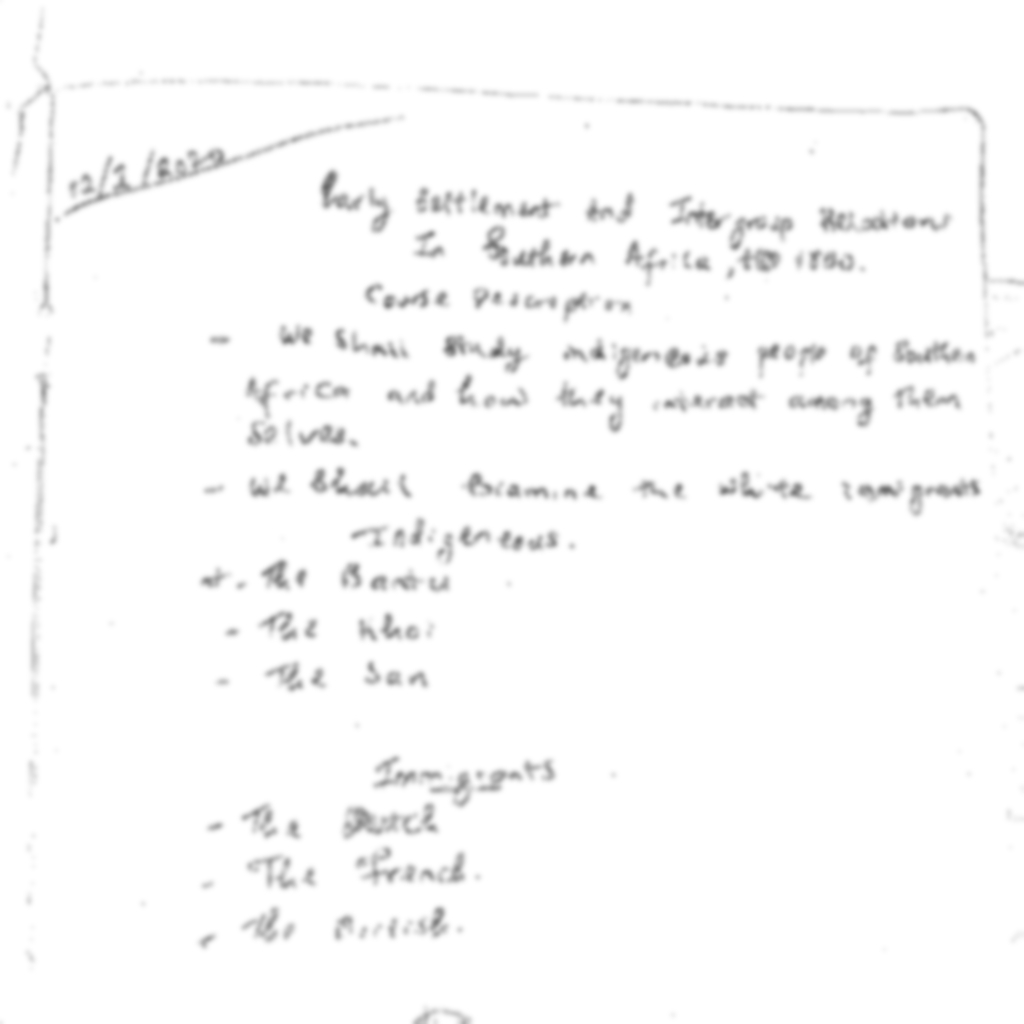 12/2/2020
Early Settlement and Intergroup Relations
In Southern Africa, to 1800.
Course Description
- We shall study indigeneous peop of Southern
Africa and how they interact among them
selves.
- We shall examine the white immigrants
Indigeneous.
- The Bantu
- The Khoi
- The San
Immigrants
- The Dutch
- The French.
- The British.